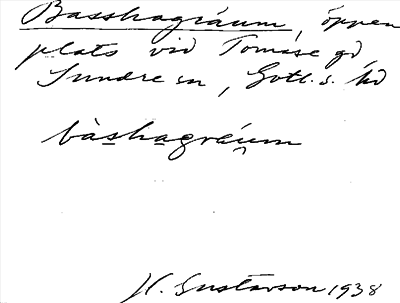 Basshagráum, öppen
plats vid Tomáse gd
Sundre sn, Gotl. s. hd
bàshagráu̯m
H. Gustavson 1938